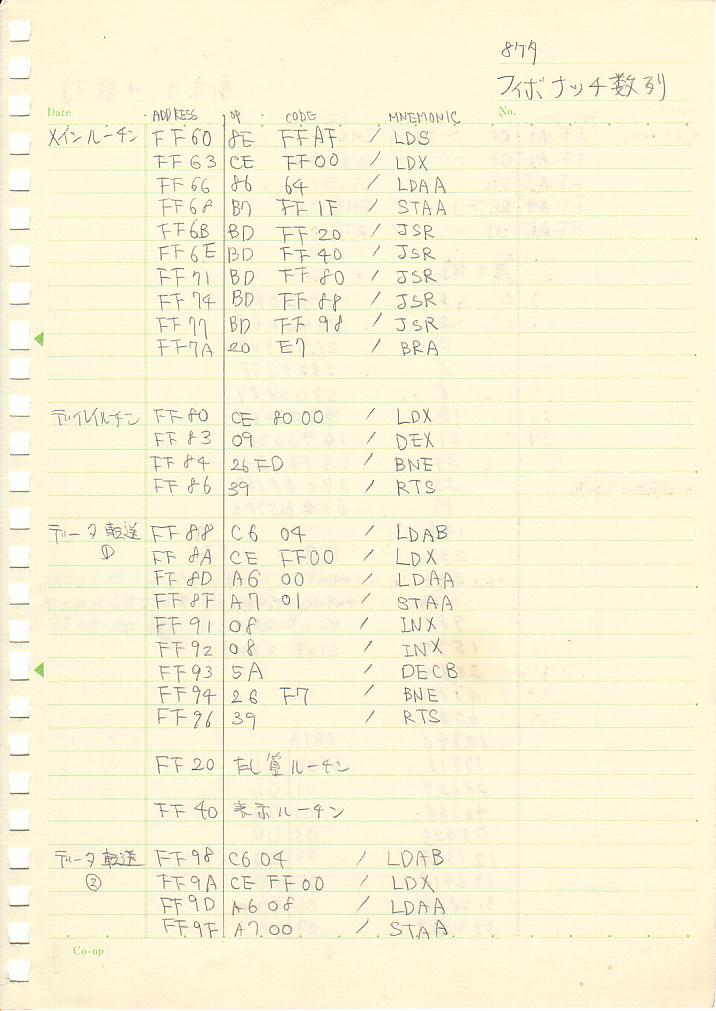 8ケタ
フィボナッチ数列
Date
No.
ADDRESS OP CODE MNEMONIC
メインルーチン FF60 8E FFAF / LDS
FF63 CE FF00 / LDX
FF66 86 64 / LDAA
FF68 B7 FF1F / STAA
FF6B BD FF20 / JSR
FF6E BD FF40 / JSR
FF71 BD FF80 / JSR
FF74 BD FF88 / JSR
FF77 BD FF98 / JSR
FF7A 20 E7 / BRA
ディレイルーチン FF80 CE 8000 / LDX
FF83 09 / DEX
FF84 26 FD / BNE
FF86 39 / RTS
データ転送 FF88 C6 04 / LDAB
① FF8A CE FF00 / LDX
FF8D A6 00 / LDAA
FF8F A7 01 / STAA
FF91 08 / INX
FF92 08 / INX
FF93 5A / DECB
FF94 26 F7 / BNE
FF96 39 / RTS
FF20 たし算ルーチン
FF40 表示ルーチン
データ転送 FF98 C6 04 / LDAB
② FF9A CE FF00 / LDX
FF9D A6 08 / LDAA
FF9F A7 00 / STAA
Co-op